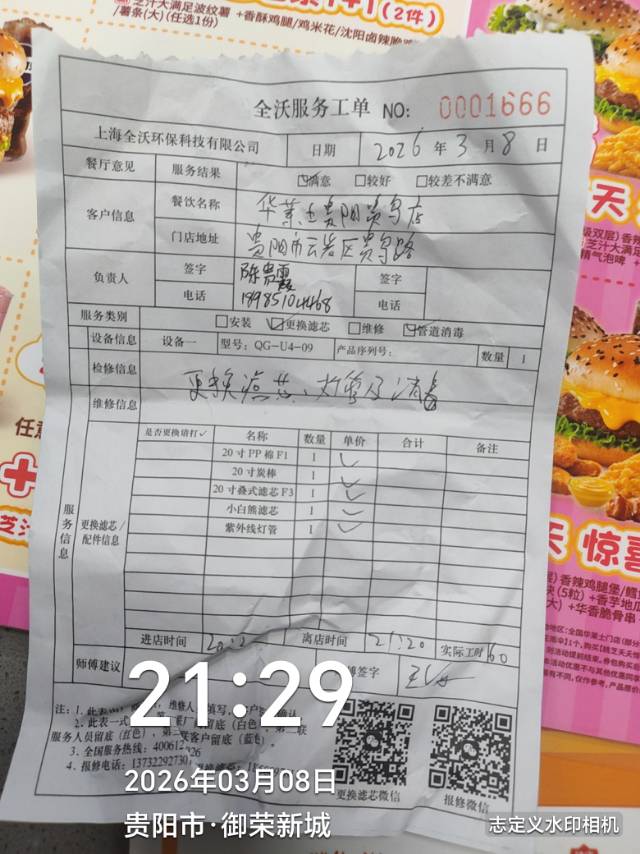 芝汁大满足波纹薯
薯条(大)(任选1份)
+香酥鸡腿/鸡米花/沈阳卤辣脆
1+1(2件)
全沃服务工单 NO: 0001666
上海全沃环保科技有限公司 日期 2026年3月8日
餐厅意见 服务结果 ☑满意 □较好 □较差不满意
客户信息 餐饮名称 华莱士贵阳贵乌店
门店地址 贵阳市云岩区贵乌路
负责人 签字 陈贵霞 签字
电话 电话
服务类别 □安装 ☑更换滤芯 □维修 ☑管道消毒
设备信息 设备一 型号: QG-U4-09 产品序列号: 数量 1
检修信息 更换滤芯、灯管及消毒
维修信息
服务信息
更换滤芯/配件信息
是否更换请打✓ 名称 数量 单价 合计 备注
20寸PP棉F1 1 ✓
20寸炭棒 1 ✓
20寸叠式滤芯F3 1 ✓
小白熊滤芯 1 ✓
紫外线灯管 1 ✓
进店时间 离店时间 21:20 实际工时 60
师傅建议 签字
注: 1. 此表
2. 此表一式
服务人员留底(红色), 客户留底(蓝色)。
3. 全国服务热线: 400612
4. 报修电话: 13732292730
更换滤芯微信 报修微信
21:29
2026年03月08日
贵阳市·御荣新城
志定义水印相机
天
惊喜
任意